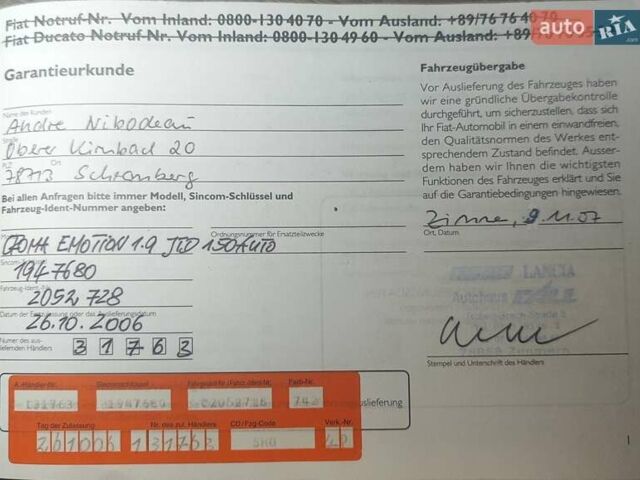 Fiat Notruf-Nr. Vom Inland: 0800-130 40 70 - Vom Ausland: +89/76 76 40 70
Fiat Ducato Notruf-Nr. Vom Inland: 0800-130 49 60 - Vom Ausland:
auto RIA.com
Garantieurkunde
Name des Kunden
Andre
Straße
Oberer Kirnbach 20
PLZ Ort
78713 Schramberg
Bei allen Anfragen bitte immer Modell, Sincom-Schlüssel und
Fahrzeug-Ident-Nummer angeben:
Ordnungsnummer für Ersatzteilzwecke
CROMA EMOTION 1.9 JTD 150 AUTO
1947680
Fahrzeug-Ident.-Nr.
2052728
Datum der Erstzulassung oder das Auslieferungsdatum
26.10.2006
Nummer des aus-
liefernden Händlers
3 1 7 6 3
Fahrzeugübergabe
Vor Auslieferung des Fahrzeuges haben
wir eine gründliche Übergabekontrolle
durchgeführt, um sicherzustellen, dass sich
Ihr Fiat-Automobil in einem einwandfreien,
den Qualitätsnormen des Werkes ent-
sprechendem Zustand befindet. Ausser-
dem haben wir Ihnen die wichtigsten
Funktionen des Fahrzeuges erklärt und Sie
auf die Garantiebedingungen hingewiesen.
9.11.07
Ort, Datum
LANCIA
Autohaus
Stempel und Unterschrift des Händlers
A.-Händler-Nr. Sincomschlüssel Fahrgestell-Nr./Fahrz.-Ident.-Nr. Farb-Nr.
131763 1947680 02052728 742
auslieferung
Tag der Zulassung Nr. des zul. Händlers CO/Fzg-Code Verk.-Nr.
261006 131763
1